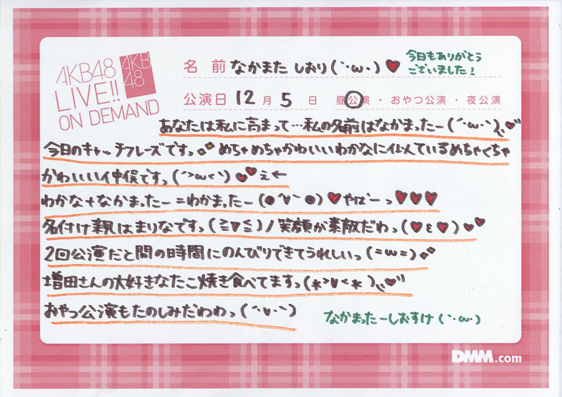 AKB48
LIVE!!
ON DEMAND
AKB
48
名前 なかまた しおり(｀･ω･)♥
今日もありがとう
ございました!
公演日 12月 5日 昼公演・おやつ公演・夜公演
あなたは私に高まって…私の名前はなかまったー(´･ω･`)
今日のキャッチフレーズですっ めちゃめちゃかわいいわかなに似んているめちゃくちゃ
かわいいい仲俣ですっ(´>ω<`)♥え←
わかな+なかまったー=わかまったー(●´∀`●)♥やばーっ♥♥♥
名付け親はまりなですっ(ミ▽ミ)ノ笑顔が素敵だわっ(♥ε♥)♥♥
2回公演だと間の時間にのんびりできてうれしいっ(=ω=)
増田さんの大好きなたこ焼き食べてますっ(*>∀<*)
おやつ公演もたのしみだわわっ(´･v･`)
なかまったーしおすけ(｀･ω･)
DMM.com